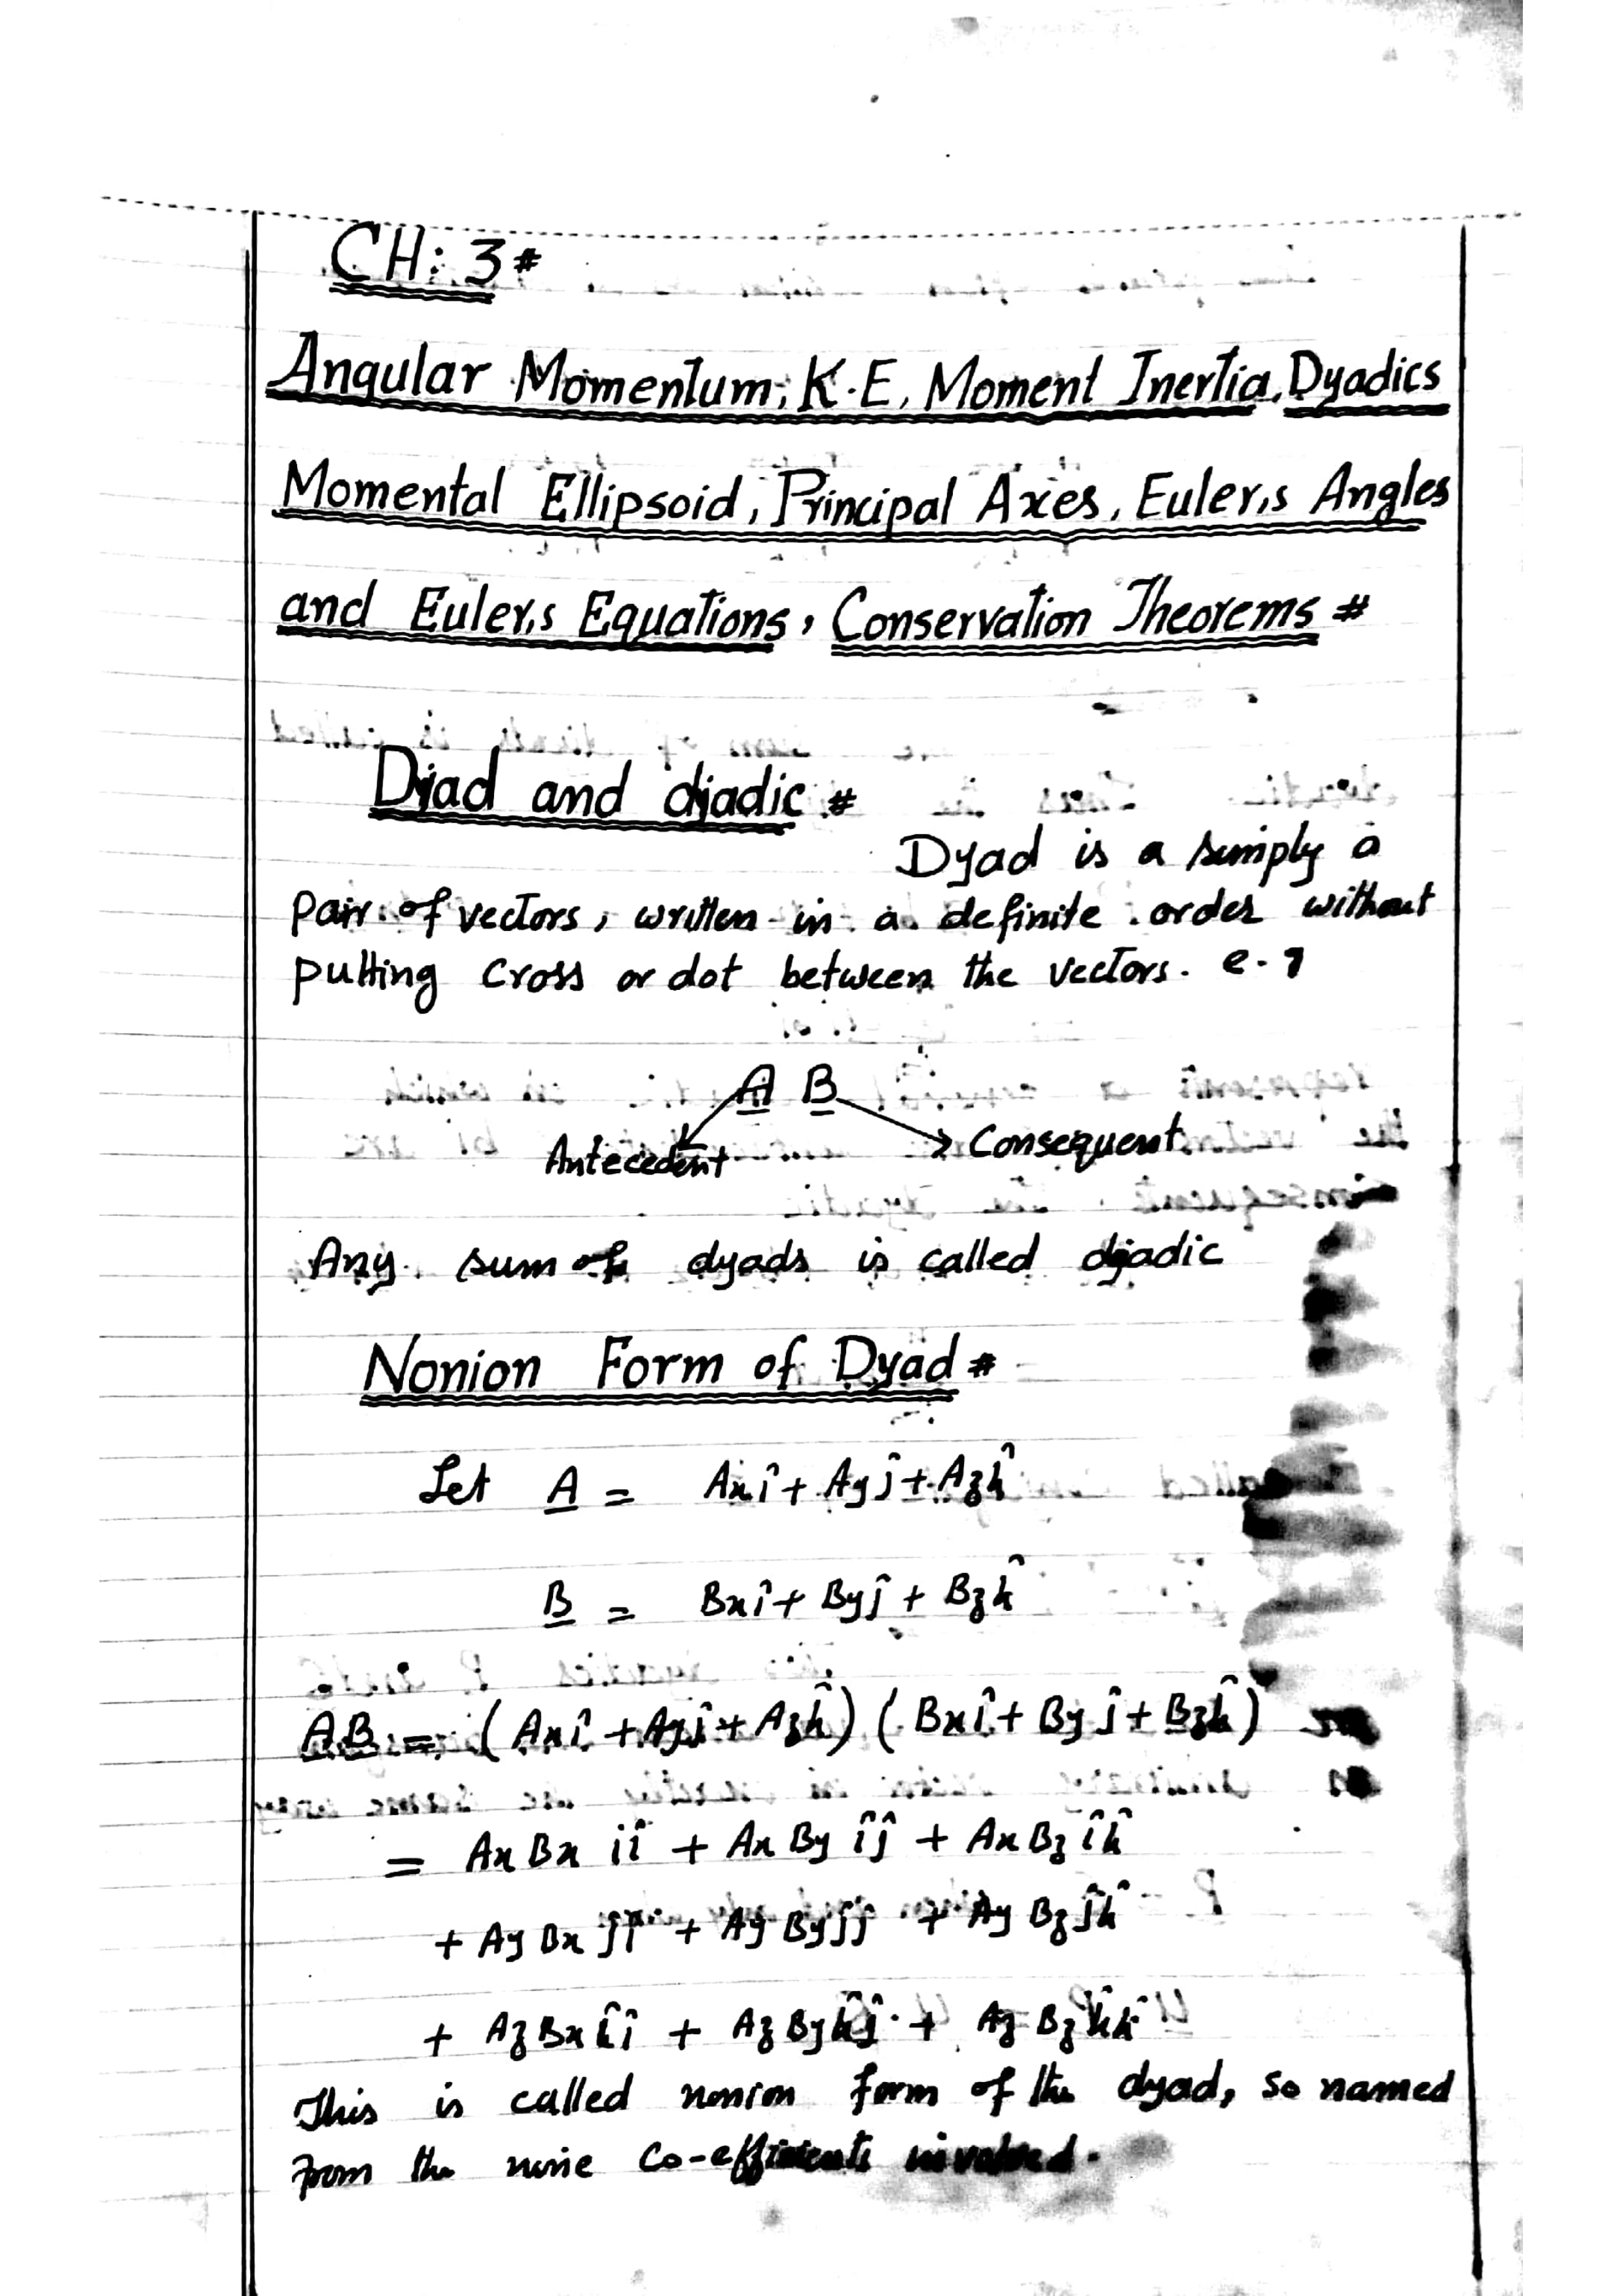 CH: 3#
Angular Momentum, K.E, Moment Inertia, Dyadics
Momental Ellipsoid, Principal Axes, Euler,s Angles
and Euler,s Equations, Conservation Theorems #
Dyad and dyadic #
Dyad is a simply a
pair of vectors, written in a definite order without
putting cross or dot between the vectors. e.g
A B
Antecedent
Consequent
Any sum of dyads is called dyadic
Nonion Form of Dyad #
Let A = Axî + Ayĵ + Azk̂
B = Bxî + Byĵ + Bzk̂
AB = (Axî + Ayĵ + Azk̂) (Bxî + Byĵ + Bzk̂)
= AxBx îî + AxBy îĵ + AxBz îk̂
+ AyBx ĵî + AyBy ĵĵ + AyBz ĵk̂
+ AzBx k̂î + AzBy k̂ĵ + AzBz k̂k̂
This is called nonion form of the dyad, so named
from the nine co-efficients involved.